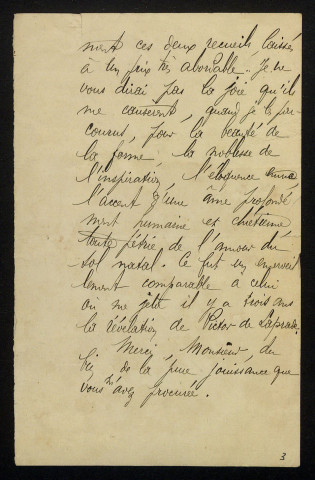 ment ces deux recueils, laissés
à un prix très abordable. Je ne
vous dirai pas la joie qu'ils
me causèrent, quand je les par-
courus, pour la beauté de
la forme, la noblesse de
l'inspiration, l'éloquence
l'accent d'une âme profondé
ment humaine et chrétienne
toute pétrie de l'amour du
sol natal. Ce fut un émerveil
lement comparable à celui
où me jeta il y a trois ans
la révélation de Victor de Laprade.
Merci, Monsieur, du
de la pure jouissance que
vous m'avez procurée.
3